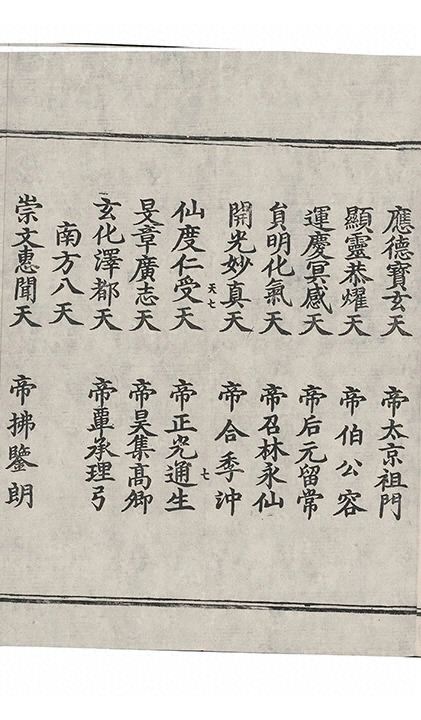 應德寶玄天　帝太京祖門
顯靈恭耀天　帝伯公容
運慶冥感天　帝后元留常
貟明化氣天　帝召林永仙
開光妙真天　帝合季沖
天七
仙度仁受天　帝正光通生
七
旻章廣志天　帝昊集高卿
玄化澤都天　帝覃承理弓
南方八天
崇文惠聞天　帝拂鑒朗